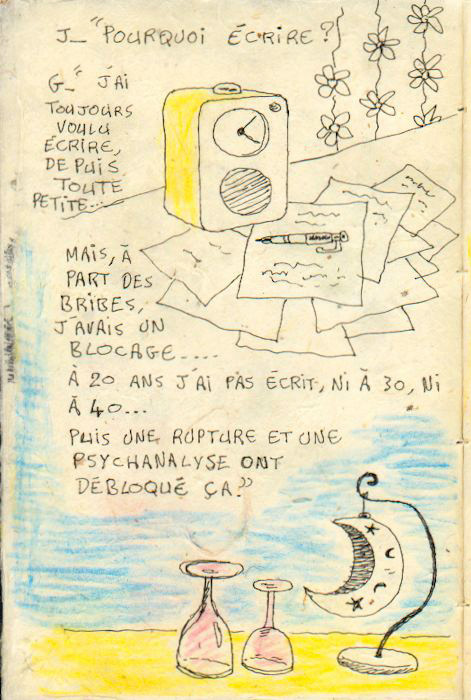 J_ "POURQUOI ÉCRIRE ?
G_" J'AI
TOUJOURS
VOULU
ÉCRIRE,
DEPUIS
TOUTE
PETITE...
MAIS, À
PART DES
BRIBES,
J'AVAIS UN
BLOCAGE....
À 20 ANS J'AI PAS ÉCRIT, NI À 30, NI
À 40...
PUIS UNE RUPTURE ET UNE
PSYCHANALYSE ONT
DÉBLOQUÉ ÇA."